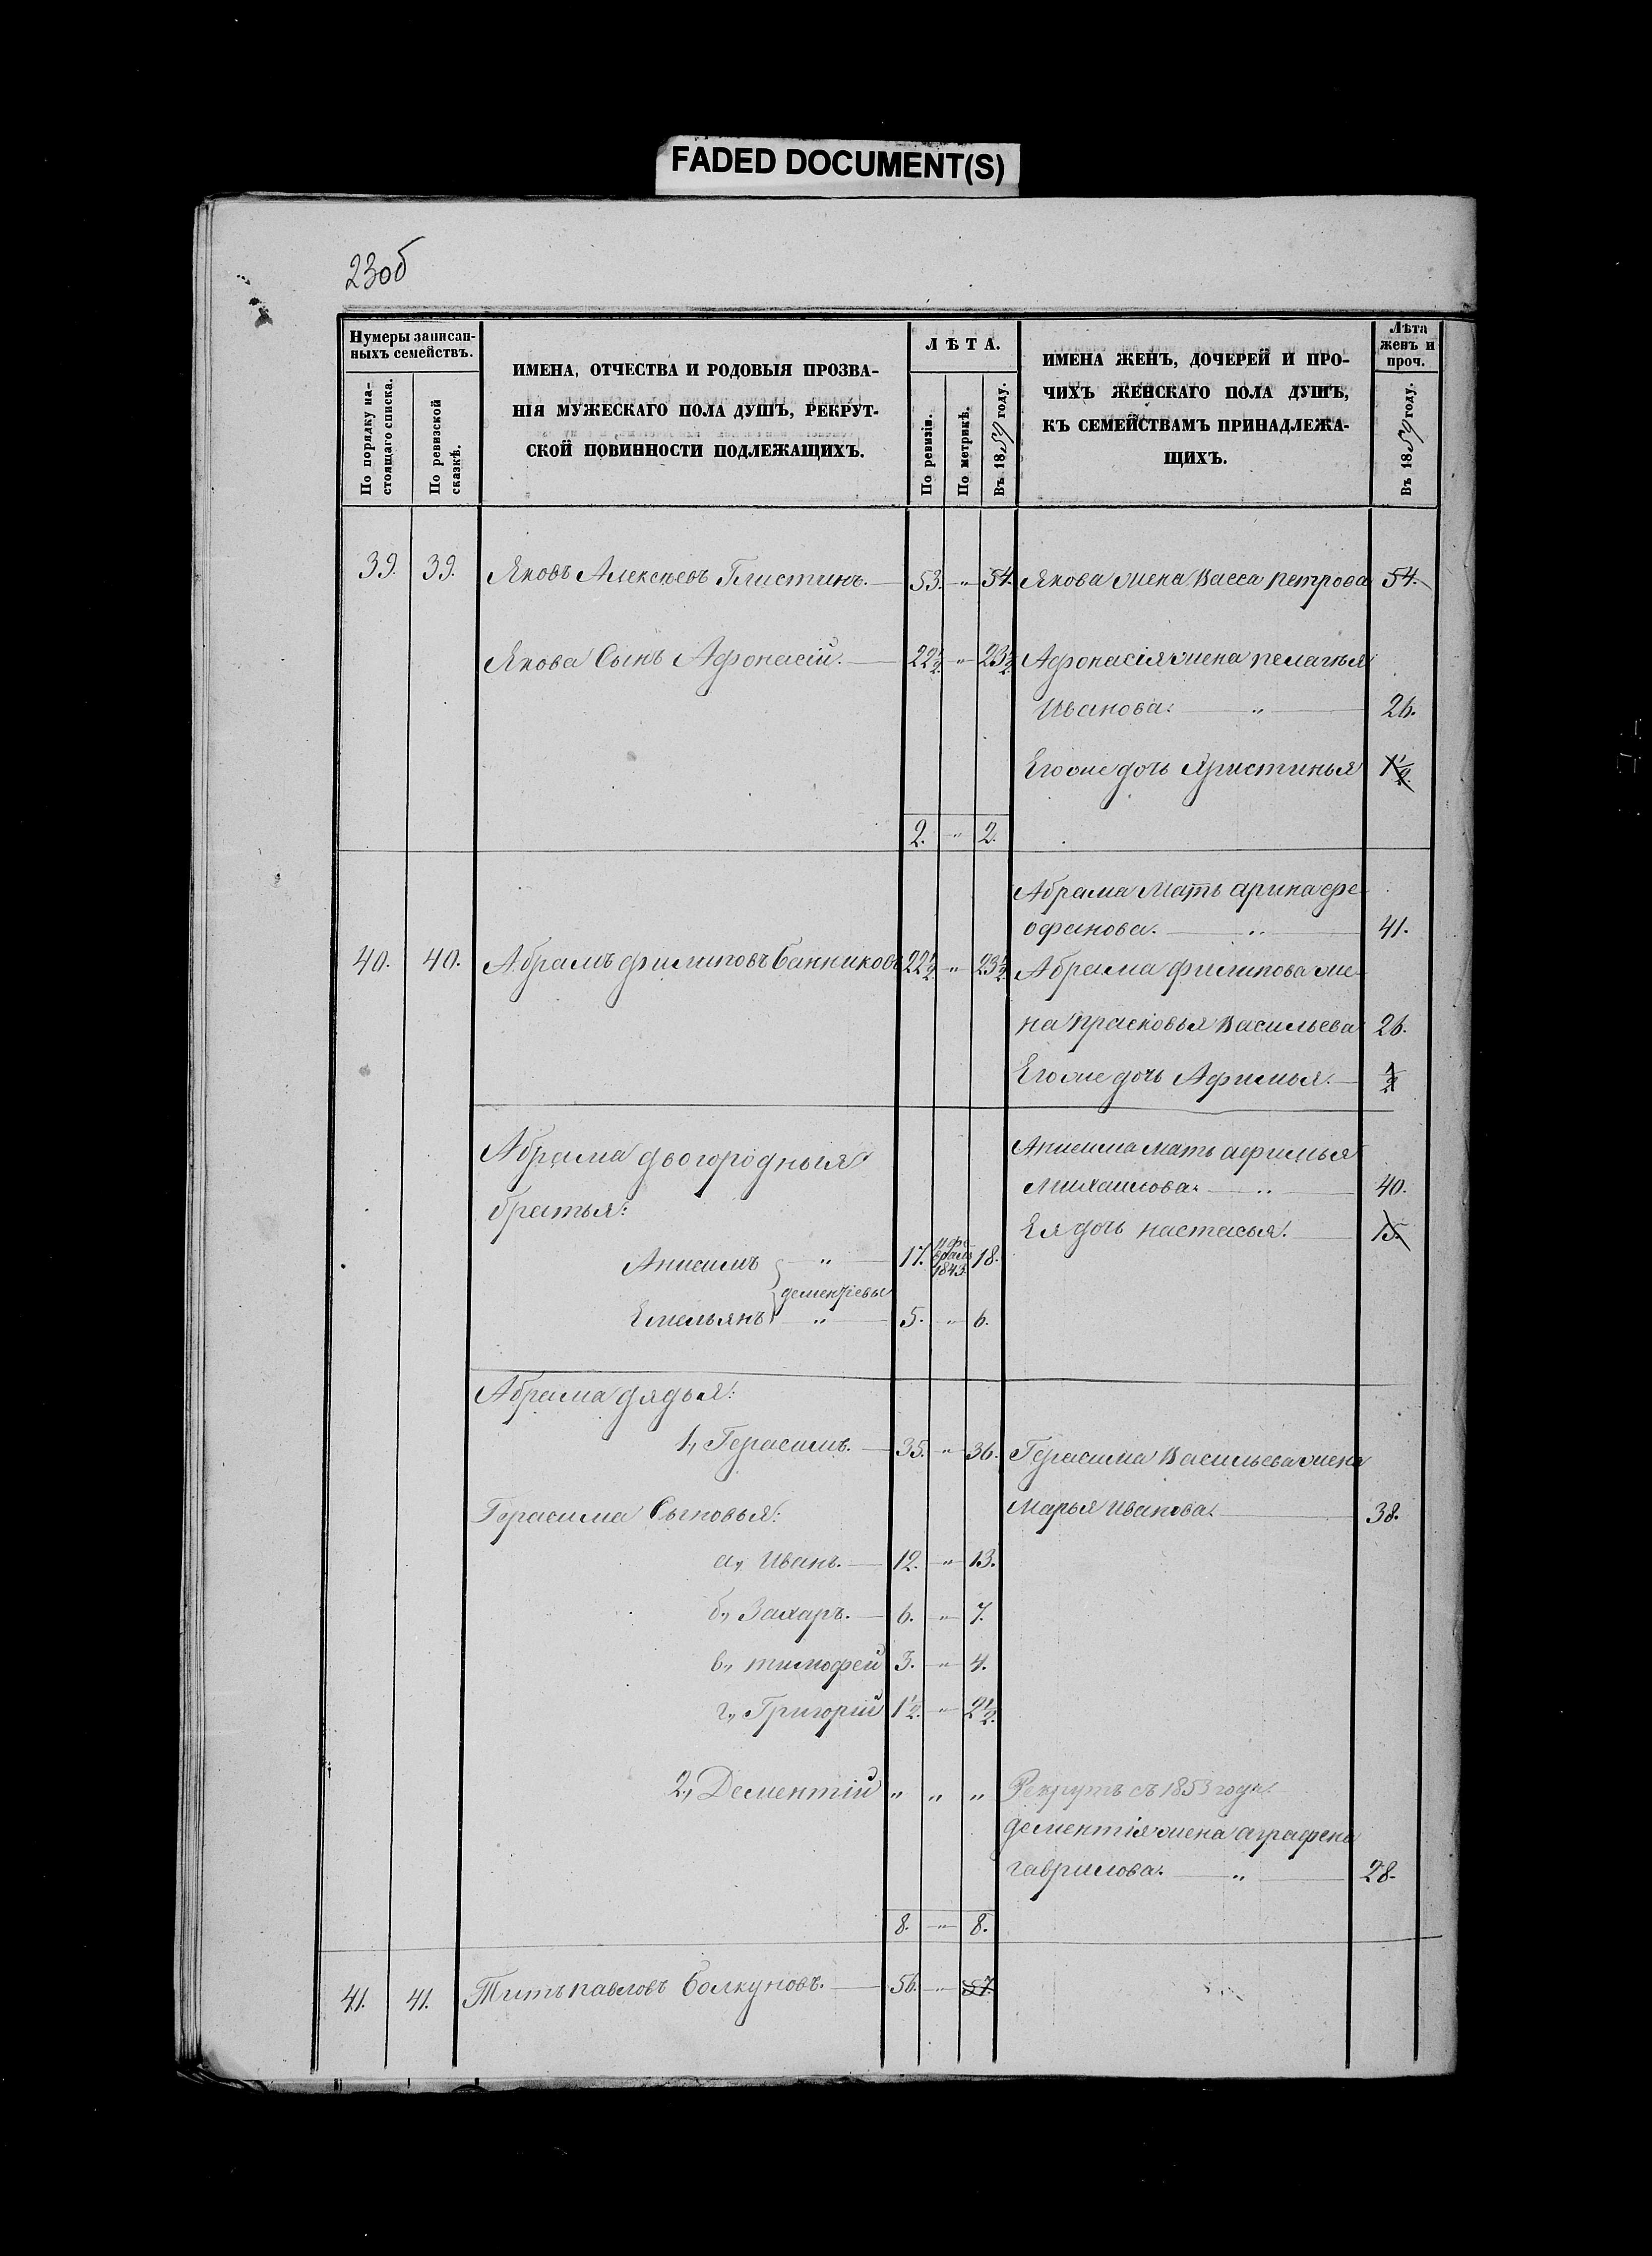 FADED DOCUMENT(S)
23об
Нумеры записан-
ныхъ семействъ.
По порядку на-
стоящаго списка.
По ревизской
сказкѣ.
ИМЕНА, ОТЧЕСТВА И РОДОВЫЯ ПРОЗВА-
НІЯ МУЖЕСКАГО ПОЛА ДУШЪ, РЕКРУТ-
СКОЙ ПОВИННОСТИ ПОДЛЕЖАЩИХЪ.
ЛѢТА.
По ревизіи.
По метрикѣ.
Въ 1859 году.
ИМЕНА ЖЕНЪ, ДОЧЕРЕЙ И ПРО-
ЧИХЪ ЖЕНСКАГО ПОЛА ДУШЪ,
КЪ СЕМЕЙСТВАМЪ ПРИНАДЛЕЖА-
ЩИХЪ.
Лѣта
женъ и
проч.
Въ 1859 году.
39. 39. Яковъ Алексѣевъ Глистинъ. 53. " 54. Якова жена Васса петрова 54.
Якова Сынъ Афонасій. 22½ " 23½ Афонасія жена пелагья
Иванова. " 26.
Его же дочь Христинья 1½
2. " 2.
Абрама Мать арина фе-
офанова. " 41.
40. 40. Абрамъ филиповъ Банниковъ 22½ " 23½ Абрама филипова же-
на прасковья Васильева 26.
Его же дочь Афимья. ½
Абрама двогородныя
братья:
Анисима мать афимья
Михаилова. " 40.
Ея дочь настасья. 15.
Анисимъ " 17. 11 фе-
враля
1843. 18.
дементіевы
Емельянъ " 5. " 6.
Абрама дядья:
1., Герасимъ. 35. " 36. Герасима Васильева жена
Герасима Сыновья: Марья Иванова. 38.
а., Иванъ. 12. " 13.
б., Захаръ. 6. " 7.
в., тимофей 3. " 4.
г., Григорій 1½ " 2½
2., Дементій " " " Рекрутъ съ 1853 года.
дементія жена аграфена
гаврилова. " 28.
8. " 8.
41. 41. Титъ павловъ Болкуновъ. 56. " 57.